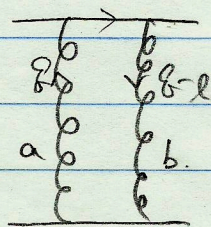 q q-ℓ
a b.